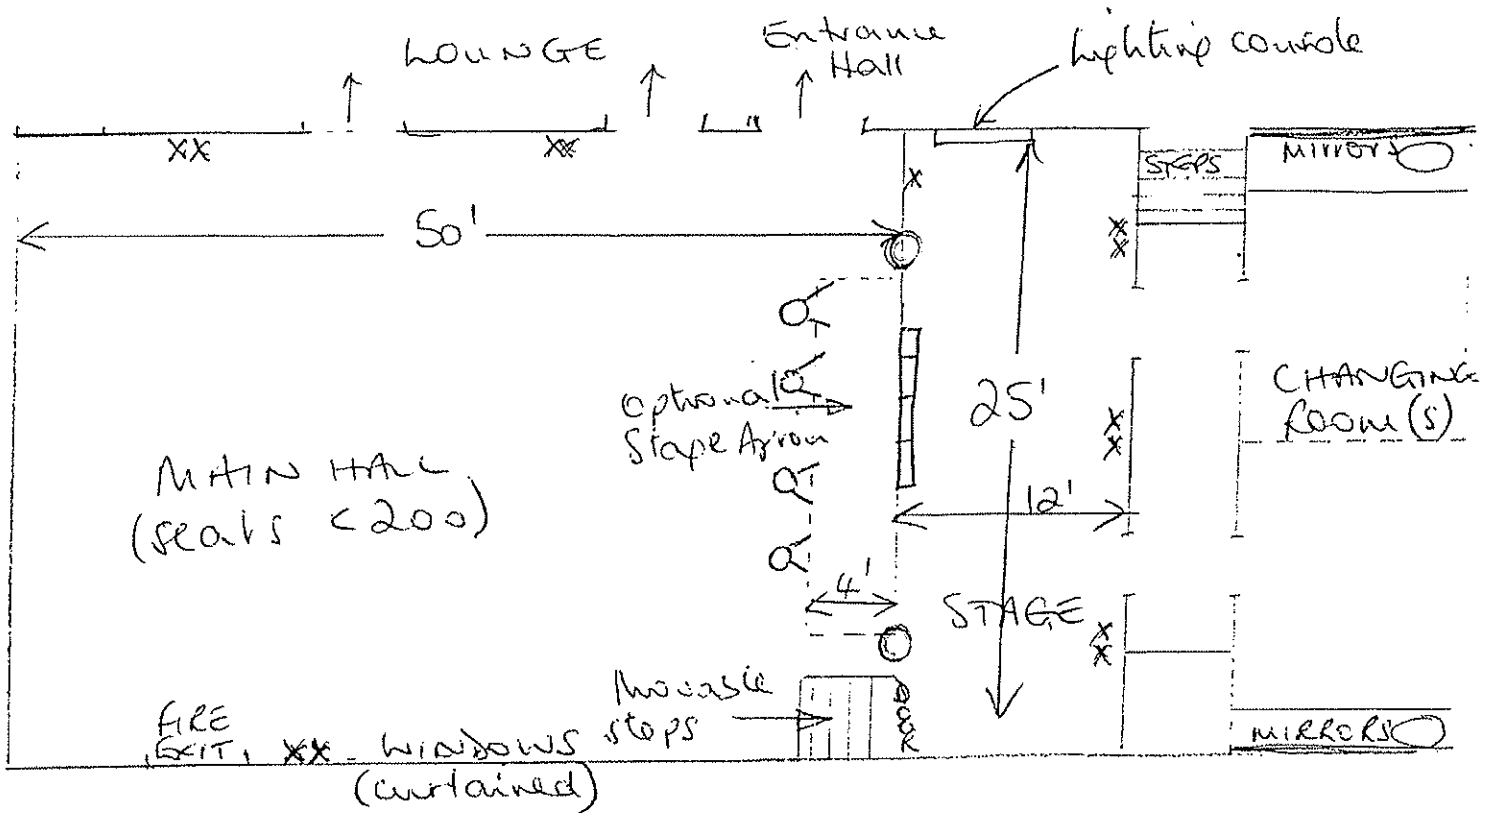 LOUNGE
Entrance
Hall
Lighting console
XX
XX
X
STEPS
MIRRORS
50'
XX
25'
Optional
Stage Apron
CHANGING
ROOM(S)
XX
MAIN HALL
(seats <200)
12'
4'
STAGE
XX
Movable
steps
DOOR
FIRE
EXIT
XX
WINDOWS
(curtained)
MIRRORS